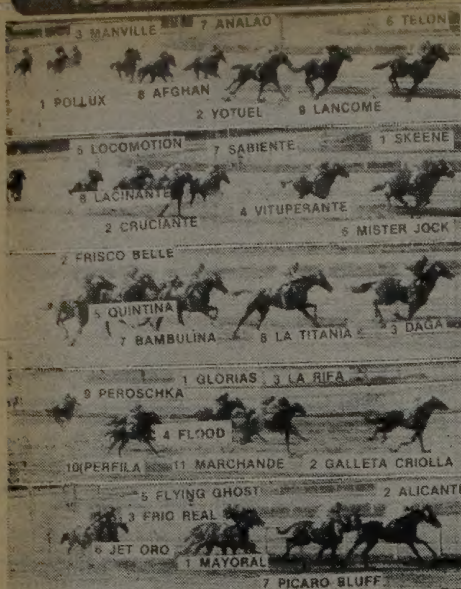 3 MANVILLE 7 ANALAO 6 TELON
8 AFGHAN
1 POLLUX
2 YOTUEL 9 LANCOME
5 LOCOMOTION 7 SABIENTE 1 SKEENE
6 LACINANTE
4 VITUPERANTE
2 CRUCIANTE
5 MISTER JOCK
2 FRISCO BELLE
5 QUINTINA
7 BAMBULINA 6 LA TITANIA 3 DAGA
1 GLORIAS 3 LA RIFA
9 PEROSCHKA
4 FLOOD
10 PERFILA 11 MARCHANDE 2 GALLETA CRIOLLA
5 FLYING GHOST 2 ALICANTE
3 FRIO REAL
6 JET ORO
1 MAYORAL
7 PICARO BLUFF